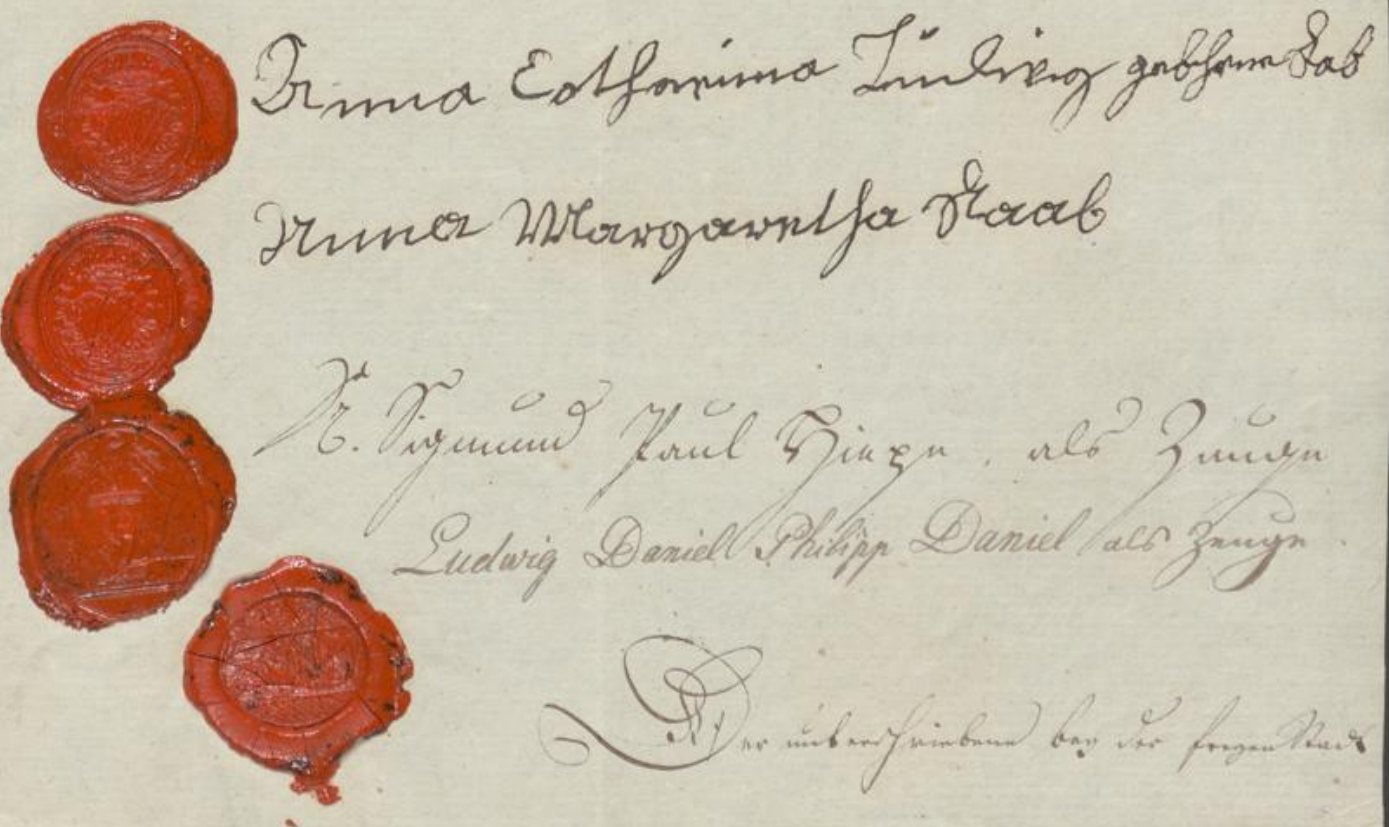 Anna Catharina Ludwig gebohrne Stab
Anna Margaretha Staab
N. Sigmund Paul Hiepe, als Zeuge
Ludwig Daniel Philipp Daniel als Zeuge.
Der unterschriebene bey der freyen Stadt